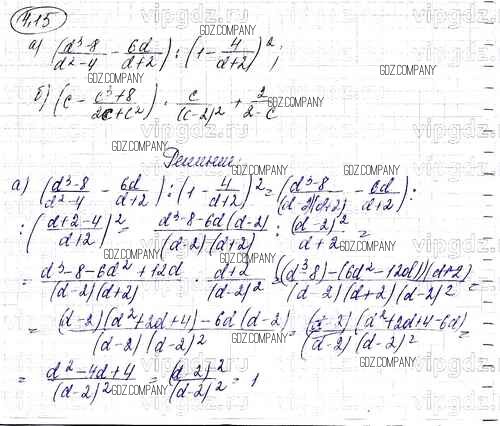 4.15
а) (d³-8/d²-4 - 6d/d+2) : (1 - 4/d+2)²;
б) (c - c³+8/2c+c²) · c/(c-2)² + 2/2-c
Решение:
а) (d³-8/d²-4 - 6d/d+2) : (1 - 4/d+2)² = (d³-8/(d-2)(d+2) - 6d/d+2) :
: (d+2-4/d+2)² = d³-8-6d(d-2)/(d-2)(d+2) : (d-2)²/d+2 =
= d³-8-6d²+12d/(d-2)(d+2) · d+2/(d-2)² = ((d³8)-(6d²-12d))(d+2)/(d-2)(d+2)(d-2)² =
= (d-2)(d²+2d+4)-6d(d-2)/(d-2)(d-2)² = (d-2)(d²+2d+4-6d)/(d-2)(d-2)² =
= d²-4d+4/(d-2)² = (d-2)²/(d-2)² = 1
GDZ.COMPANY
vipgdz.ru